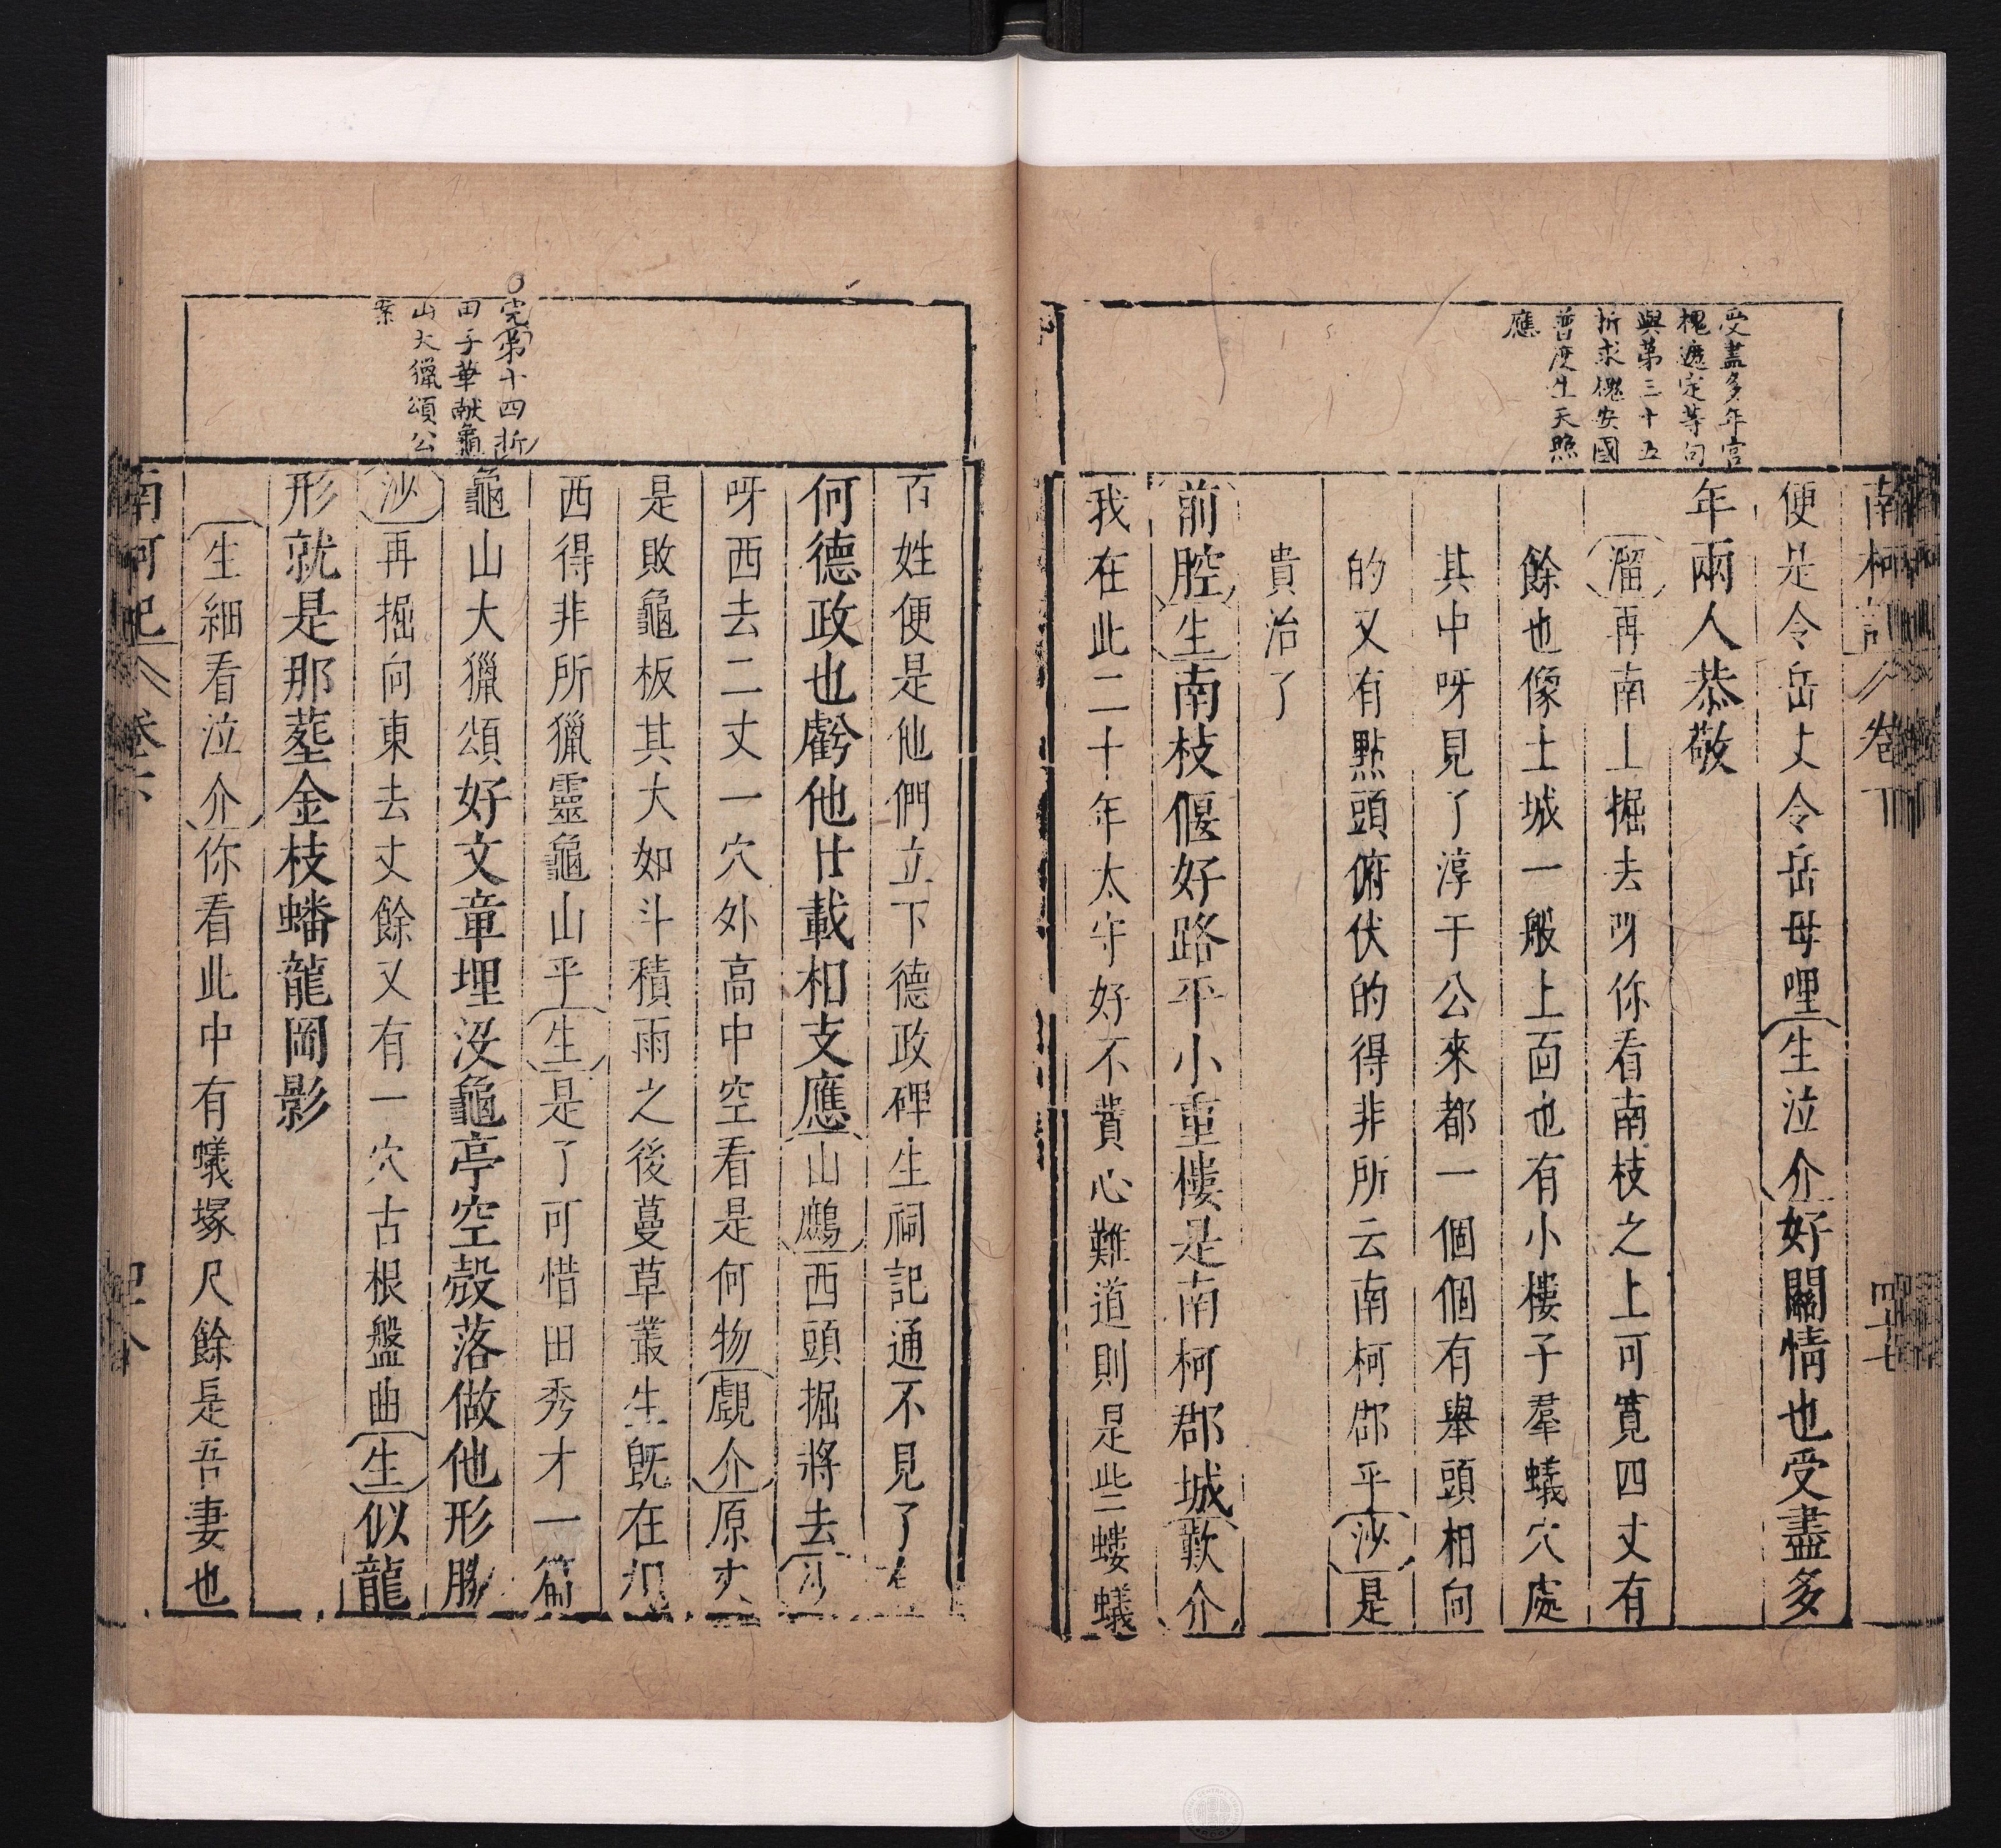 南柯記 卷下 四十七
受盡多年宮
槐遮定等句
與第三十五
折求槐安國
普度生天照
應
便是令岳丈令岳母哩生泣介好關情也受盡多
年兩人恭敬
溜再南上掘去呀你看南枝之上可寬四丈有
餘也像土城一般上面也有小樓子羣蟻穴處
其中呀見了淳于公來都一個個有舉頭相向
的又有點頭俯伏的得非所云南柯郡乎沙是
貴治了
前腔生南枝偃好路平小重樓是南柯郡城歎介
我在此二十年太守好不費心難道則是些螻蟻
百姓便是他們立下德政碑生祠記通不見了
何德政也虧他廿載相支應山鷓西頭掘將去沙
呀西去二丈一穴外高中空看是何物覷介原來
是敗龜板其大如斗積雨之後蔓草叢生既在
西得非所獵靈龜山乎生是了可惜田秀才一篇
龜山大獵頌好文章埋沒龜亭空殼落做他形勝
沙再掘向東去丈餘又有一穴古根盤曲生似龍
形就是那塟金枝蟠龍岡影
生細看泣介你看此中有蟻塚尺餘是吾妻也
完第十四折
田子華献龜
山大獵頌公
案
南柯記 卷下